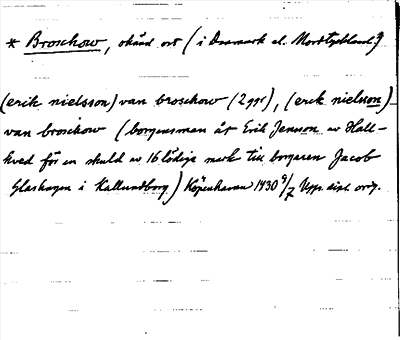 * Broschow, okänd ort (i Danmark el. Nordtyskland?)
(erik nielsson) van broschow (2 ggr), (erik nielson)
van broschow (borgensman åt Erik Jenson av Hall-
kved för en skuld av 16 lödiga mark till borgaren Jacob
Glashagen i Kallundborg) Köpenhamn 1430 9/7 Upps. dipl. orig.